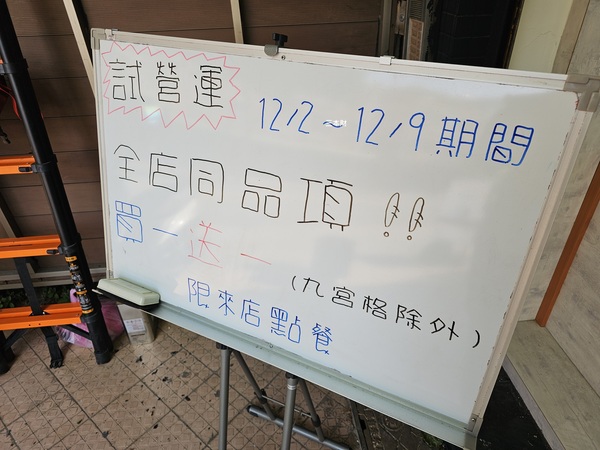 試營運
12/2~12/9期間
全店同品項!!
買一送一
(九宮格除外)
限來店點餐